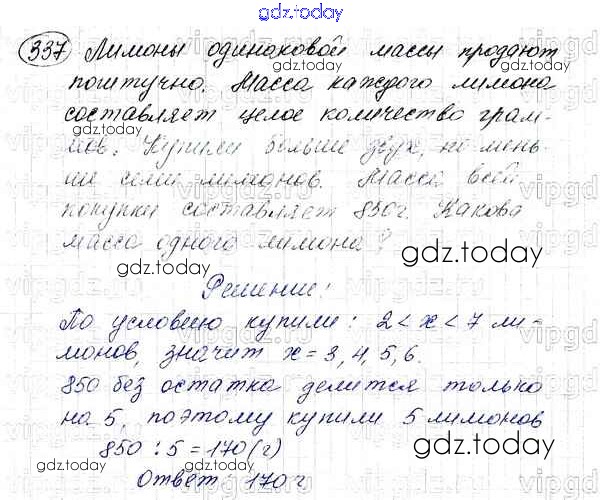 gdz.today
337 Лимоны одинаковой массы продают
поштучно. Масса каждого лимона
составляет целое количество грам-
мов. Купили больше двух, но мень-
ше семи лимонов. Масса всей
покупки составляет 850г. Какова
масса одного лимона?
gdz.today
Решение:
По условию купили: 2 < x < 7 ли-
монов, значит x = 3, 4, 5, 6.
850 без остатка делится только
на 5, поэтому купили 5 лимонов
850 : 5 = 170 (г)
Ответ 170 г
gdz.today